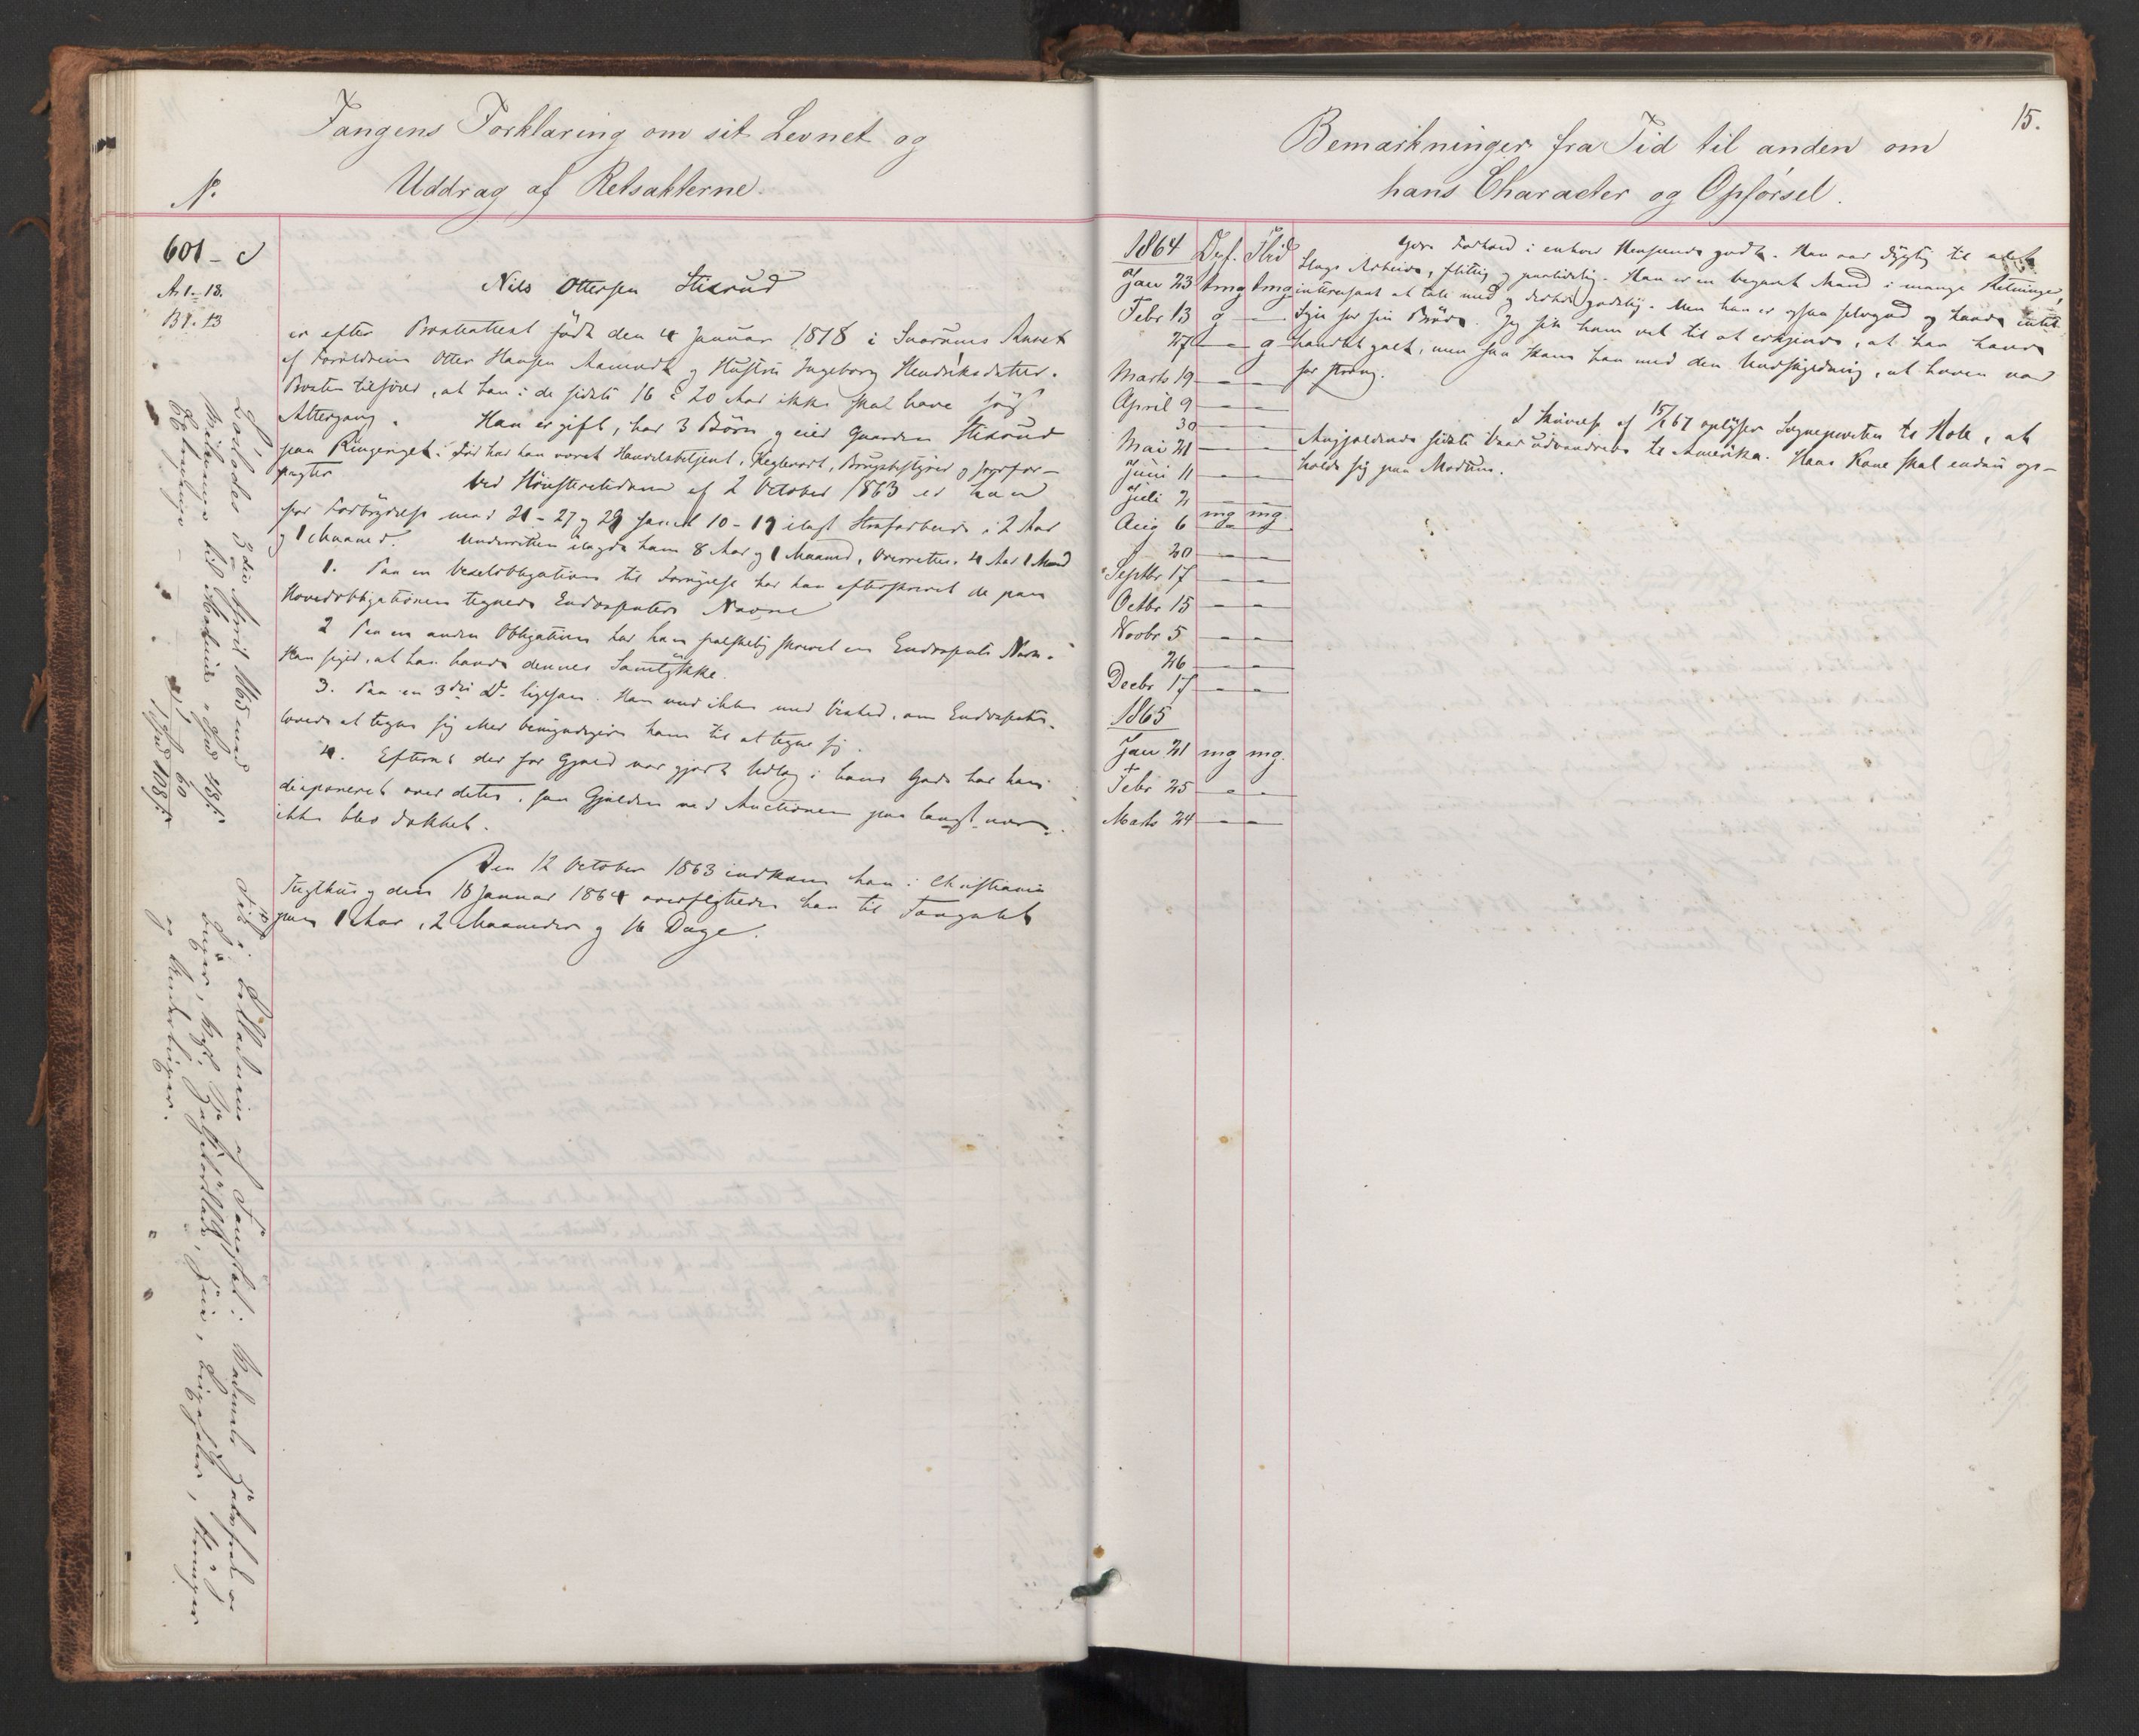 Fangens Forklaring om sit Levnet og
Uddrag af Retsakterne.
No.
601 - c
A. 1. 18.
B. 1. 13
Nils Ottersen Stixrud
er efter Præsteattest født den 4 Januar 1818 i Snarums Annex
af Forældrene Otter Hansen Aamodt og Hustru Ingeborg Hendriksdatter.
Præsten tilføier, at han i de sidste 16 à 20 Aar ikke skal have søgt
Altergang. Han er gift, har 3 Børn og eier Gaarden Stixrud
paa Ringerige. Før har han været Handelsbetjent, Brugsbestyrer og
Ved Høiesteretsdom af 2 October 1863 er han
for Forbrydelse mod 21 - 27 og 29 samt 10 - 19 ilagt Strafarbeide i 2 Aar
og 1 Maaned. Underretten ilagde ham 8 Aar og 1 Maaned, Overretten 4 Aar 1 Maand
1. Paa en Vexelobligation til Fornyelse har han efterskrevet de paa
Hovedobligationen tegnede Endossenters Navne
2 Paa en anden Obligation har han falskelig skrevet en Endossents Navn.
Han siger, at han havde dennes Samtykke.
3. Paa en 3die Do ligesaa. Han ved ikke med Vished, om Endossenten
lovede at tegne sig eller bemyndigede ham til at tegne sig.
4. Efterat der for Gjæld var gjort Udlæg i hans Gods har han
disponeret over dette, saa Gjælden ved Auctionen paa langt nær
ikke blev dækket.
Den 12 October 1863 indkom han i Christiania
Tugthus og den 18 Januar 1864 overflyttedes han til Fangslet
paa 1 Aar, 2 Maaneder og 16 Dage.
Løslodes 3die April 1865 med
1 Spd 108 s
Tøi i Erstatning af Fangslet: Vadmels
og Underbuxer.
15.
Bemærkninger fra Tid til anden om
hans Character og Opførsel.
1864 Opf. Flid
Jan 23 tmg tmg
Febr 13 g —
27 — g
Marts 19 — —
April 9 — —
30 — —
Mai 21 — —
Juni 11 — —
Juli 2 — —
Aug 6 mg mg
20 — —
Septbr 17 — —
Octbr 15 — —
Novbr 5 — —
26 — —
Decbr 17 — —
1865
Jan 21 mg mg
Febr 25 — —
Marts 24 — —
Forhold i enhver Henseende godt. Han var dygtig til alle
Slags Arbeide, flittig og paalidelig. Han er en begavet Mand i mange Retninger,
interessant at tale med og derhos godslig. Men han er ogsaa selvgod og havde intet
Syn for sin Brøde. Jeg fik ham vel til at erkjende, at han havde
handlet galt, men saa kom han med den Undskyldning, at Loven var
for streng.
I Skrivelse af 15/1 67 oplyser Sognepræsten til Hole, at
Angjældende sidste Vaar udvandrede til Amerika. Hans Kone skal endnu op-
holde sig paa Modum.